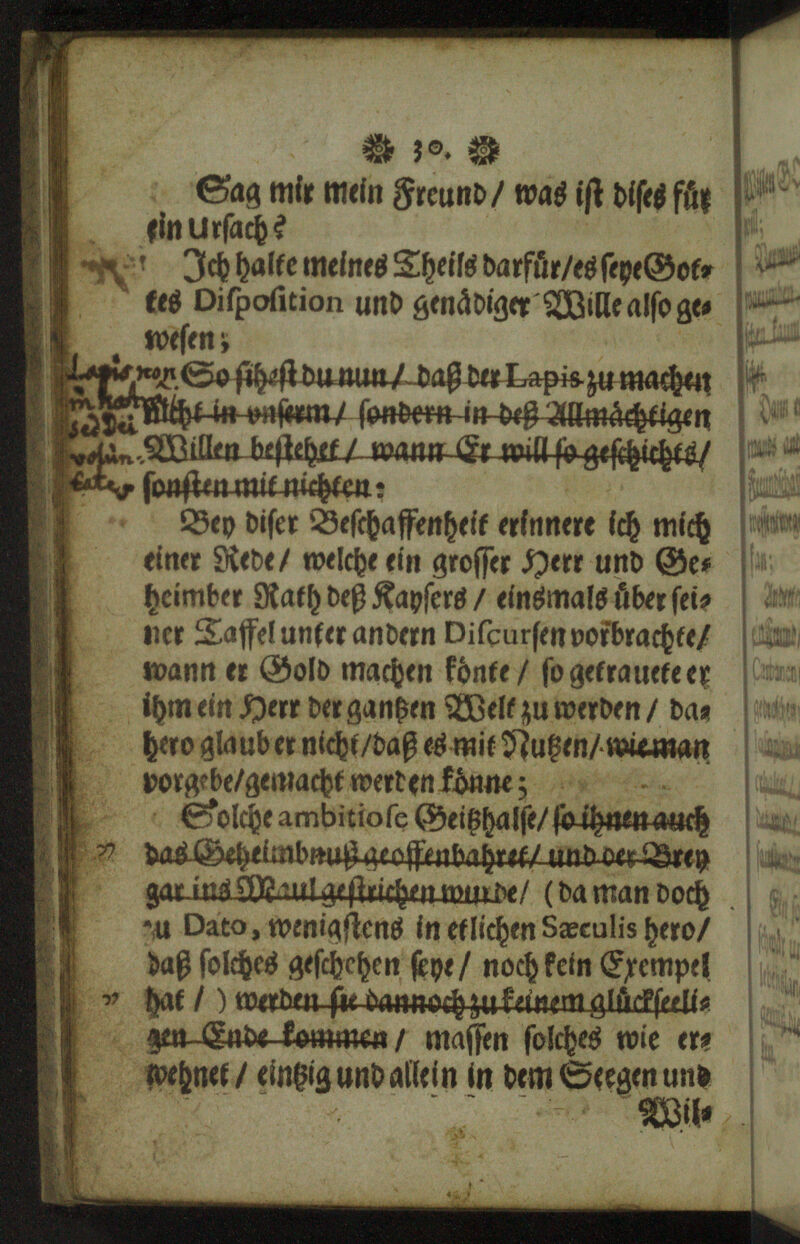 30.
Sag mir mein Freund/ was ist dises für
ein Ursach?
Ich halte meines Theils darfür/es seye Got-
tes Disposition und genädiger Wille also ge-
wesen;
Lapis non So sihest du nun/ daß der Lapis zu machen
nicht in unserm/ sondern in deß Allmächtigen
Willen bestehet/ wann Er will so geschichts/
sonsten mit nichten:
Bey diser Beschaffenheit erinnere ich mich
einer Rede/ welche ein grosser Herr und Ge-
heimber Rath deß Kaysers/ einsmals über sei-
ner Taffel unter andern Discursen vorbrachte/
wann er Gold machen könte/ so getrauete er
ihm ein Herr der gantzen Welt zu werden/ da-
hero glaub er nicht/daß es mit Nutzen/ wie man
vorgebe/gemacht werden könne;
Solche ambitiose Geitzhälse/ so ihnen auch
das Geheimbnuß geoffenbahret/ und der Brey
gar ins Maul gestrichen wurde/ (da man doch
zu Dato, wenigstens in etlichen Sæculis hero/
daß solches geschehen seye/ noch kein Exempel
hat/) werden sie dannoch zu keinem glückseeli-
gen Ende kommen/ massen solches wie er-
wehnet/ eintzig und allein in dem Seegen und
Wil-